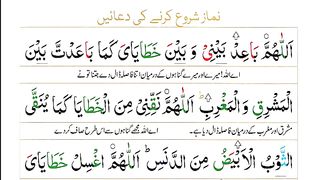 نماز شروع کرنے کی دعائیں
اَللّٰهُمَّ بَاعِدْ بَيْنِيْ وَ بَيْنَ خَطَايَايَ كَمَا بَاعَدْتَّ بَيْنَ
اے اللہ! میرے اور میرے گناہوں کے درمیان اتنا فاصلہ ڈال دے جتنا تو نے
الْمَشْرِقِ وَ الْمَغْرِبِ اَللّٰهُمَّ نَقِّنِيْ مِنَ الْخَطَايَا كَمَا يُنَقَّى
مشرق اور مغرب کے درمیان فاصلہ ڈال دیا ہے۔ اے اللہ مجھے گناہوں سے اس طرح صاف کر دے
الثَّوْبُ الْاَبْيَضُ مِنَ الدَّنَسِ اَللّٰهُمَّ اغْسِلْ خَطَايَايَ